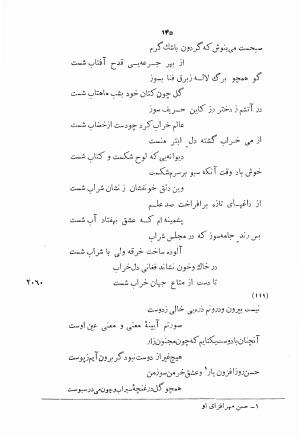 ۱۴۵
صبحست می‌بنوش که گردون باشک گرم
از بهر جرعه‌یی قدح آفتاب شست
گو همچو برگ لاله زبرق فنا بسوز
گل چون کتان خود بشب ماهتاب شست
در آتشم ز دختر رز کاین حریف سوز
عالم خراب کرد چو دست از خضاب شست
از می خراب گشته دل ابتر منست
دیوانه‌یی که لوح شکست و کتاب شست
خوش باد وقت آنکه سبو بر سرم شکست
وین دلق خونفشان ز نشان شراب شست
از داغهای تازه برافراخت صد علم
پشمینه‌ام که عشق بهفتاد آب شست
بس رند جامه‌سوز که در مجلس شراب
آلوده ساخت خرقه ولی با شراب شست
در خاک و خون نشاند فغانی دل خراب
تا دست از متاع جهان خراب شست
۲۰۶۰
(۱۱۹)
نیست بیرون و درونم ذره‌یی خالی ز دوست
صورتم آیینهٔ معنی و معنی عین اوست
آنچنان با دوست یکتایم که چون مجنون زار
هیچ غیر از دوست نبود گر برون آیم ز پوست
حسن روزافزون یار و عشق خرمن سوز من
همچو گل در غنچهٔ سیراب و چون می در سبوست
۱- حسن مهر افزای او